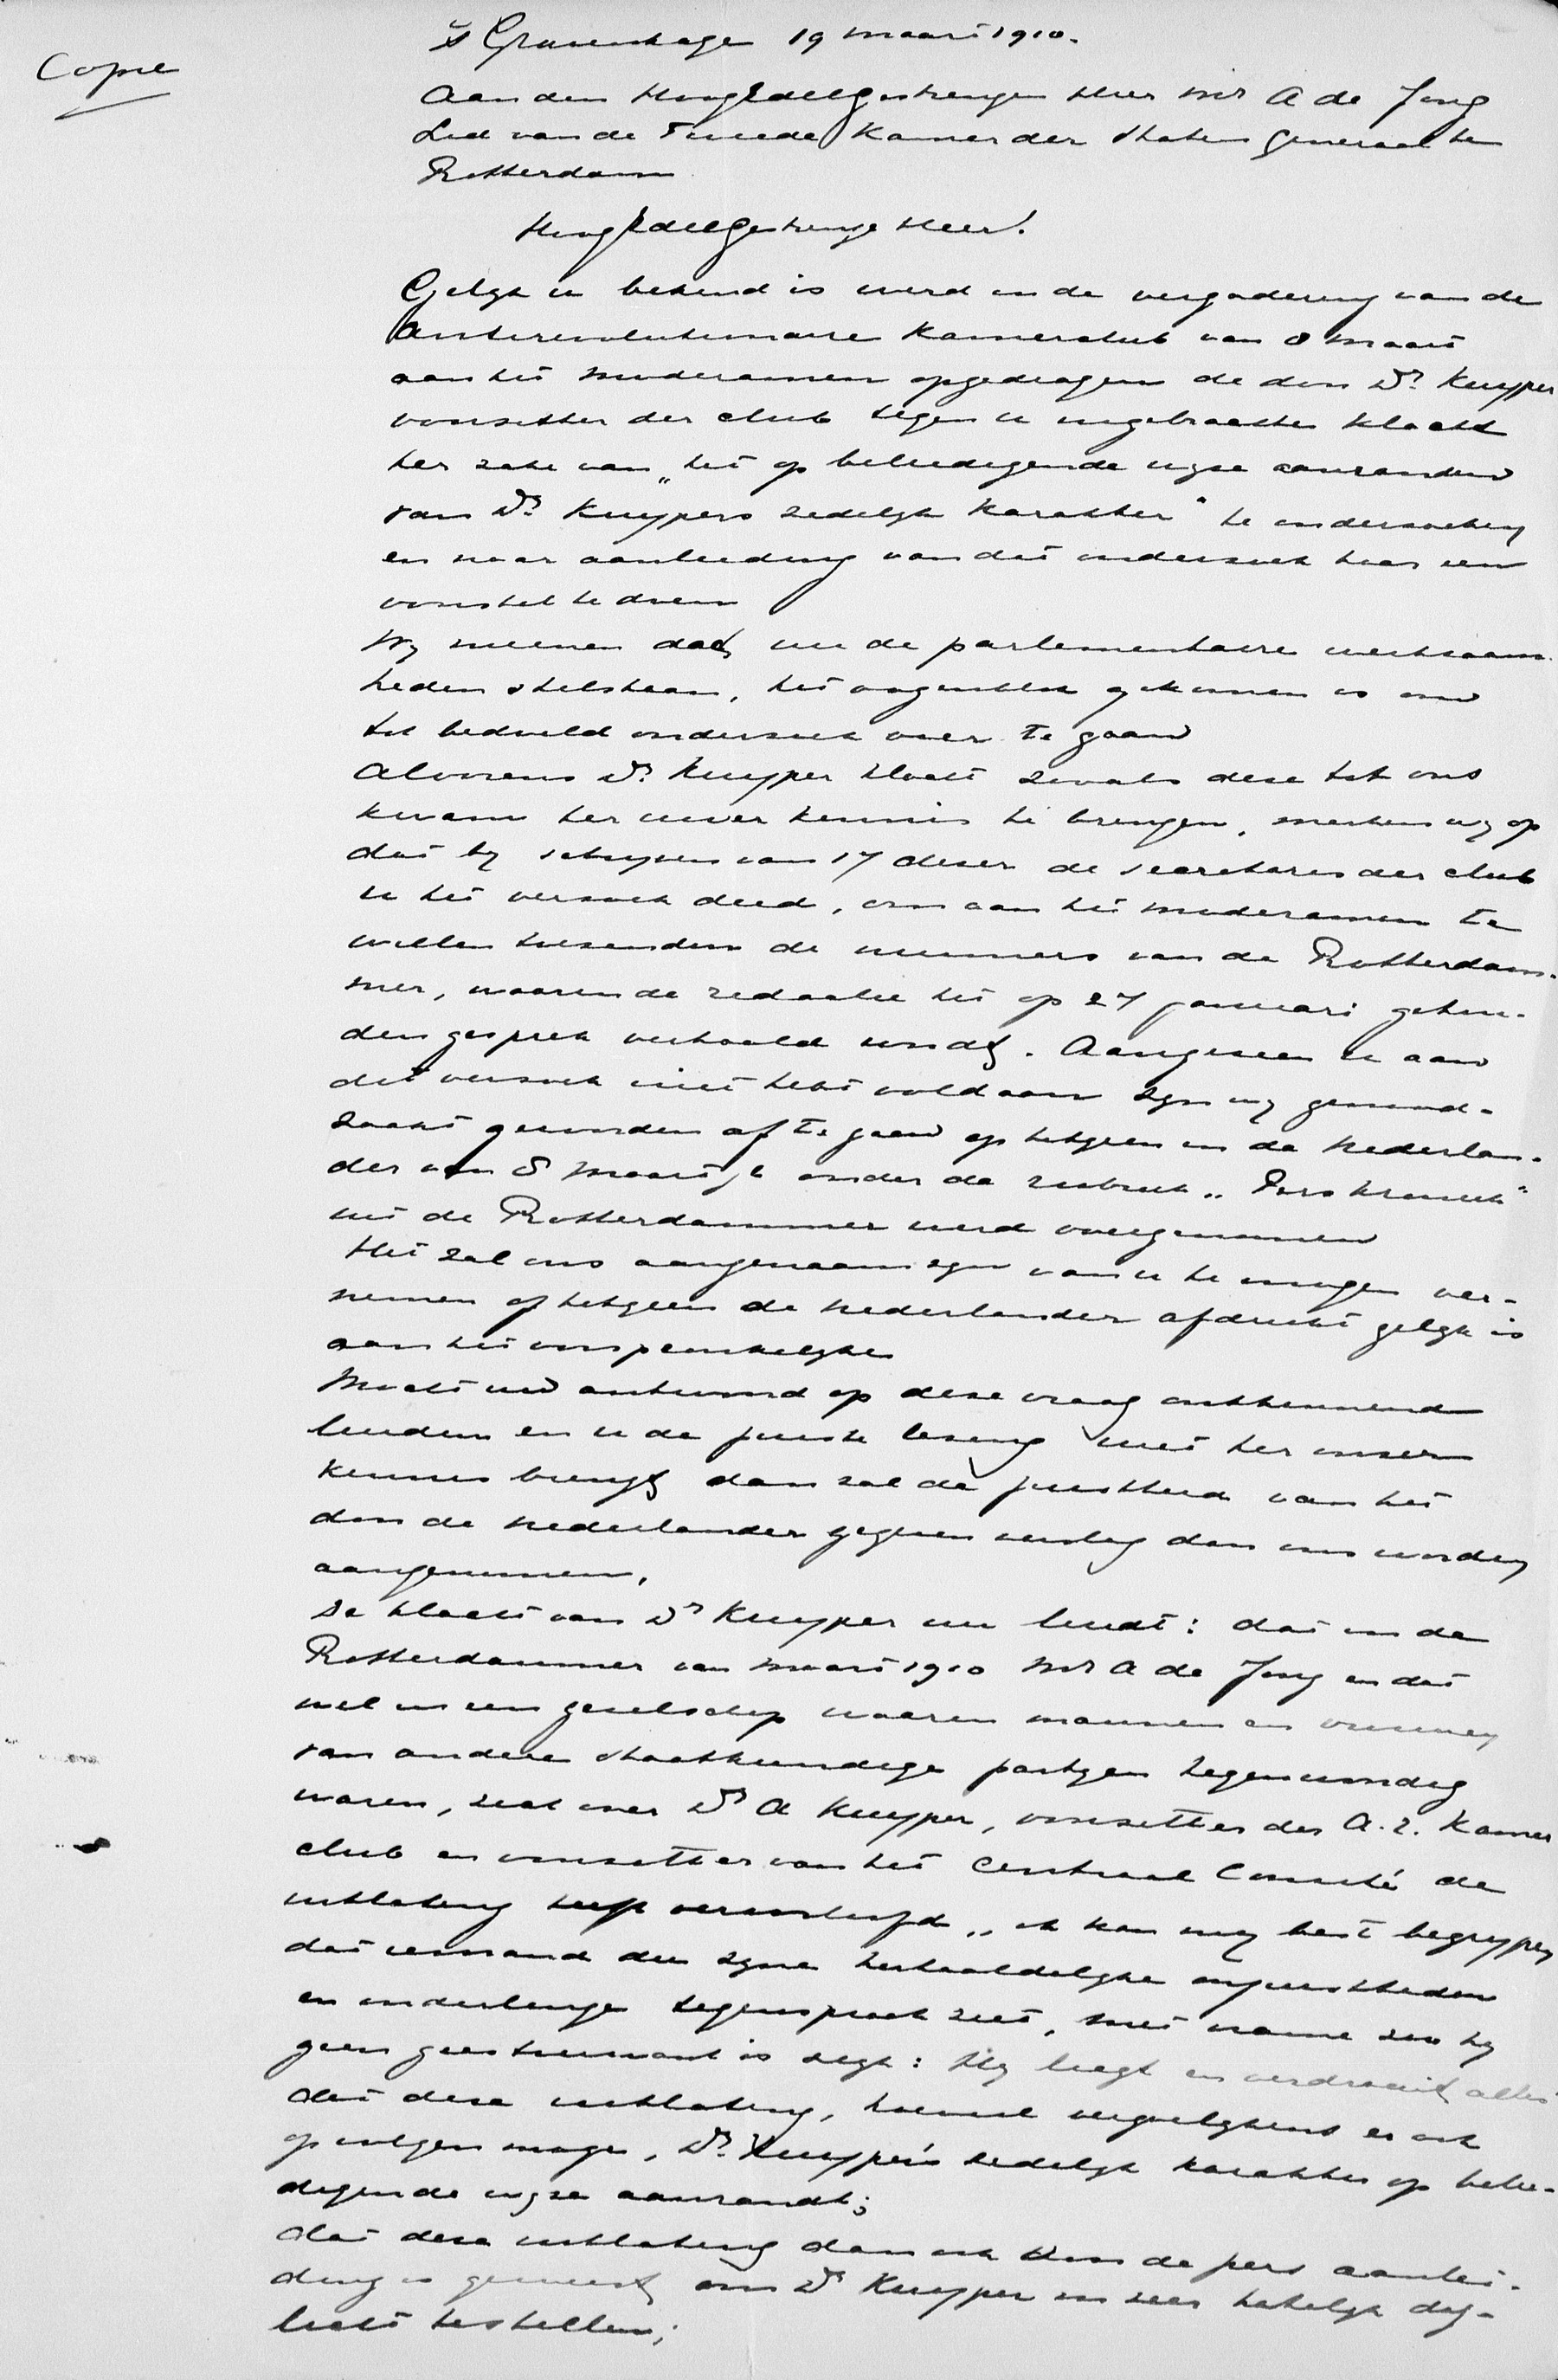 Copie
's Gravenhage 19 maart 1910.
Aan den HoogEdelGestrengen Heer Mr A de Jong
Lid van de Tweede Kamer der Staten Generaal te
Rotterdam
HoogEdelGestrenge Heer!
Gelijk u bekend is werd in de vergadering van de
Antirevolutionaire Kamerclub van 8 maart
aan het moderamen opgedragen de door Dr Kuyper
voorzitter der club tegen u ingebrachte klacht
ter zake van „het op beleedigende wijze aanranden
van Dr Kuypers zedelijk karakter" te onderzoeken
en naar aanleiding van dit onderzoek haar een
voorstel te doen
Wij meenen dat, nu de parlementaire werkzaam-
heden stilstaan, het oogenblik gekomen is om
tot bedoeld onderzoek over te gaan
Alvorens Dr Kuyper klacht zooals deze tot ons
kwam ter uwer kennis te brengen, merken wij op
dat bij schrijven van 17 dezer de secretaris der club
u het verzoek deed, om aan het moderamen te
willen toezenden de nummers van de Rotterdam-
mer, waarin de redactie het op 27 januari gehou-
den gesprek verhaald vindt. Aangezien u aan
dit verzoek niet hebt voldaan zijn wij genood-
zaakt geworden af te gaan op hetgeen in de Nederlan-
der van 8 Maart jl onder de rubriek „Pers kroniek"
uit de Rotterdammer werd overgenomen
Het zal ons aangenaam zijn van u te mogen ver-
nemen of hetgeen de Nederlander afdrukt gelijk is
aan het oorspronkelijke
Mocht uw antwoord op deze vraag ontkennend
luiden en u de juiste lezing niet ter onzer
kennis brengt dan zal de juistheid van het
door de Nederlander gegeven verslag door ons worden
aangenomen.
De klacht van Dr Kuyper nu luidt: dat in de
Rotterdammer van maart 1910 Mr A de Jong en dat
wel in een gezelschap waarin mannen en vrouwen
van andere staatkundige partijen tegenwoordig
waren, zich over Dr A Kuyper, voorzitter der A.r. Kamer
club en voorzitter van het Centraal Comité de
uitlating heeft veroorloofd „ik kan mij best begrijpen
dat iemand die zijne herhaaldelijke onjuistheden
en onderlinge tegenspraak ziet, met name zoo hij
geen geestverwant is zegt: Hij liegt en verdraait alles
dat deze uitlating, hoeveel vergoelijkends er ook
op volgen moge, Dr. Kuyper's zedelijk karakter op belee-
digende wijze aanrandt;
dat deze uitlating dan ook door de pers aanlei-
ding is geweest om Dr Kuyper in zeer hatelijk dag-
licht te stellen;